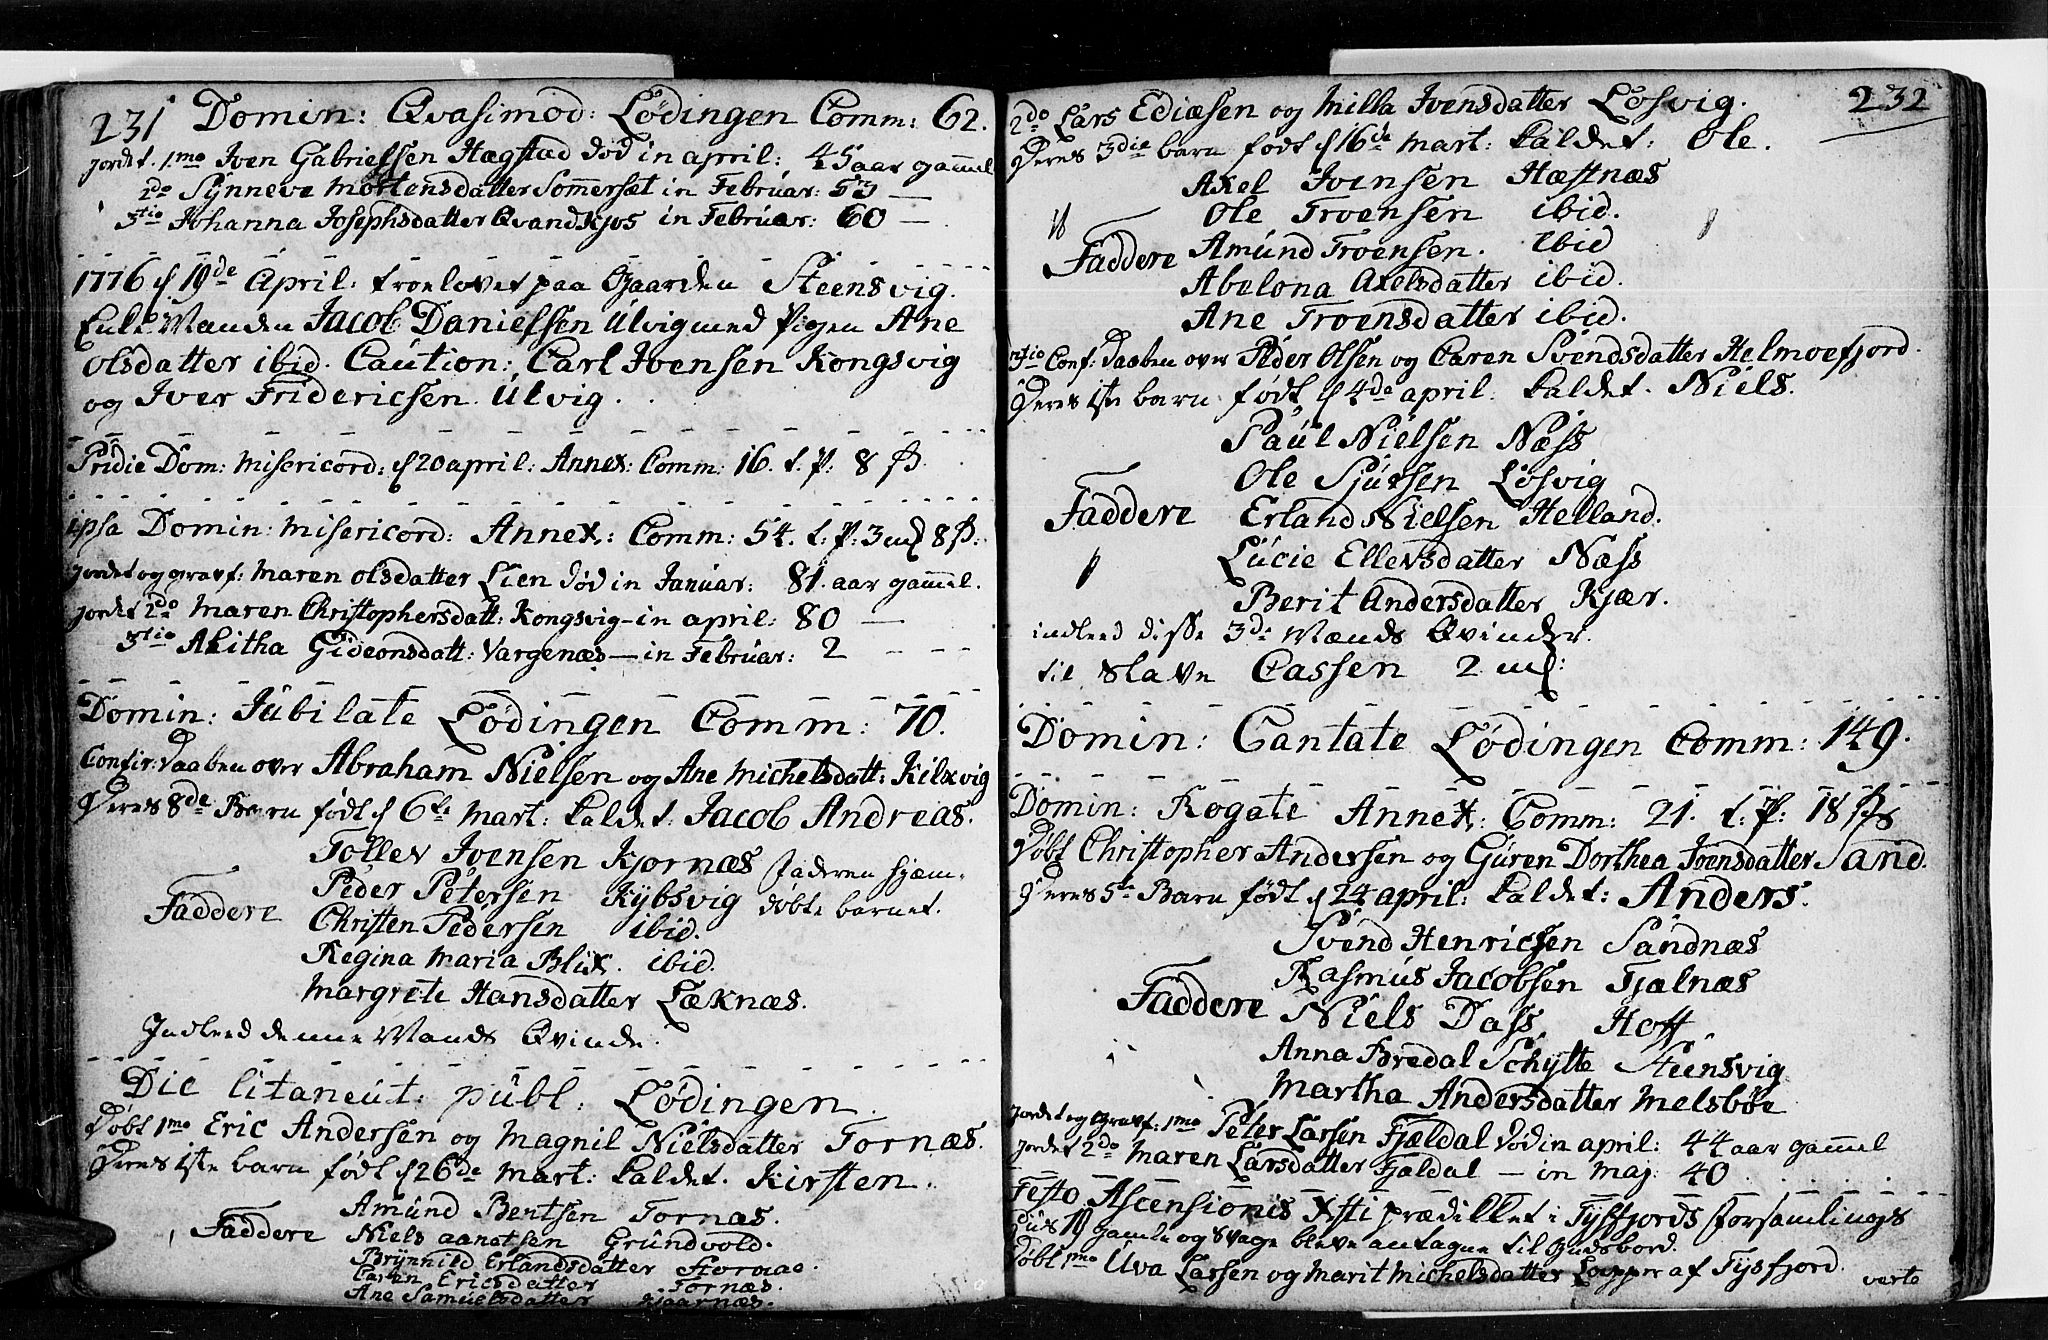 231 Domin: Qvasimod: Lødingen Comm: 62.
Jordet. 1mo Iven Gabrielsen Hægstad død in april: 45 aar gammel
2do Synneve Mortensdatter Sommersæt in Februar: 53 —
3tio Johanna Josephsdatter Qvandkjos in Februar: 60 —
1776 d 19de April. troelovet paa Gaarden Steensvig.
Enke Manden Jacob Danielsen Ulvig med Pigen Ane
Olsdatter ibid. Caution: Carl Ivensen Kongsvig
og Iver Fridericsen Ulvig.
Pridie Dom: Misericord: d 20 april: Annex: Comm: 16. t. P: 8 ß.
ipsa Domin: Misericord: Annex: Comm: 54. t: P: 3 mk 8 ß:
Jordet og gravf: Maren Olsdatter Lien død in Januar: 81. aar gammel.
Jordet 2do Maren Christophersdatt: Kongsvig — in april: 80 —
3tio Akitha Gideonsdatt: Vargenæs — in Februar: 2
Domin: Jubilate Lødingen Comm: 70.
Confir: Daaben over Abraham Nielsen og Ane Michelsdatt: Kilxvig
Deres 8de Barn født d 6te Mart: kaldet: Jacob Andreas.
Tollev Ivensen Kjornæs Faderen hjem-
Peder Petersen Kybsvig døbte barnet.
Faddere Christen Pedersen ibid.
Regina Maria Blix. ibid.
Margrete Hansdatter Læknæs.
Indleed denne Mands Qvinde.
Die litaneut: publ: Lødingen.
Døbt 1mo Eric Andersen og Magnil Nielsdatter Tornæs.
Deres 1ste barn født d 26de Mart: kaldet. Kirsten.
Amund Bentsen Tornæs.
Faddere Niels Aanetsen Grundvold.
Brynnild Erlandsdatter Stornæs.
Caren Ericsdatter Tornæs.
Ane Samuelsdatter Kjaarnæs.
232
2do Lars Ediæsen og Milla Ivensdatter Løsvig.
Deres 3die barn født d 16de Mart: kaldet: Ole.
Axel Ivensen Hæstnæs
Ole Troensen ibid.
Faddere Amund Troensen. ibid
Abelona Axelsdatter ibid.
Ane Troensdatter ibid.
3tio Conf: Daaben over Peder Olsen og Caren Svendsdatter Helmoefjord.
Deres 1ste barn født d 4de april: kaldet. Niels.
Paul Nielsen Næss
Ole Sjursen Løsvig
Faddere Erland Nielsen Helland.
Lucie Ellevsdatter Næss
Berit Andersdatter Kjær.
indleed disse 3de Mænds Qvinder.
til Slave Cassen 2 mk:
Domin: Cantate Lødingen Comm: 149.
Domin: Rogate Annex: Comm: 21. t: P: 18 ß
Døbt Christopher Andersen og Guren Dorthea Ivensdatter Sand.
Deres 5te Barn født d 24 april: kaldet: Anders.
Svend Henricsen Sandnæs
Rasmus Jacobsen Tjælnæs
Faddere Niels Dass, Hoff
Anna Bredal Schytte Steensvig
Martha Andersdatter Melsbøe
Jordet og Gravf: 1mo Peter Larsen Fjældal død in april: 44 aar gammel
Jordet 2do Maren Larsdatter Fjældal — in maj: 40
Festo Ascensionis Xsti prædiket i Tysfjords forsamlings
huus 19 gamle og svage bleve antagne til Gudsbord.
Døbt 1mo Uva Larsen og Marit Michelsdatter Lapper af Tysfjord.
verte